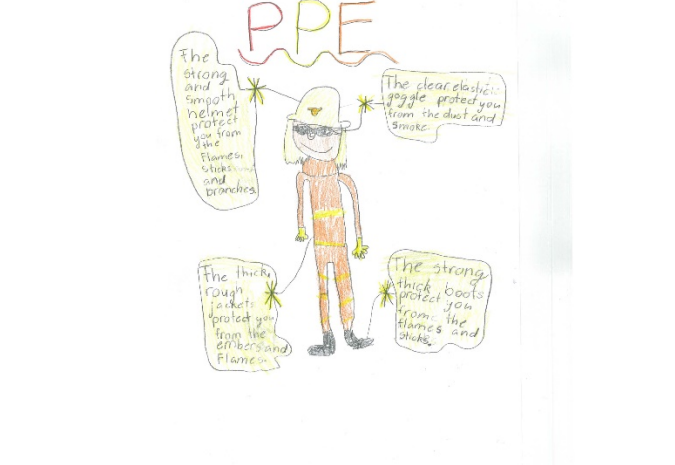 PPE
The
strong
and
smooth
helmet
protect
you from
the
flames,
sticks
and
branches.
The clear, elastic
goggle protect you
from the dust and
smoke
The thick,
rough
jackets
protect you
from the
embers and
Flames.
The strong
thick boots
protect you
from the
flames and
sticks.